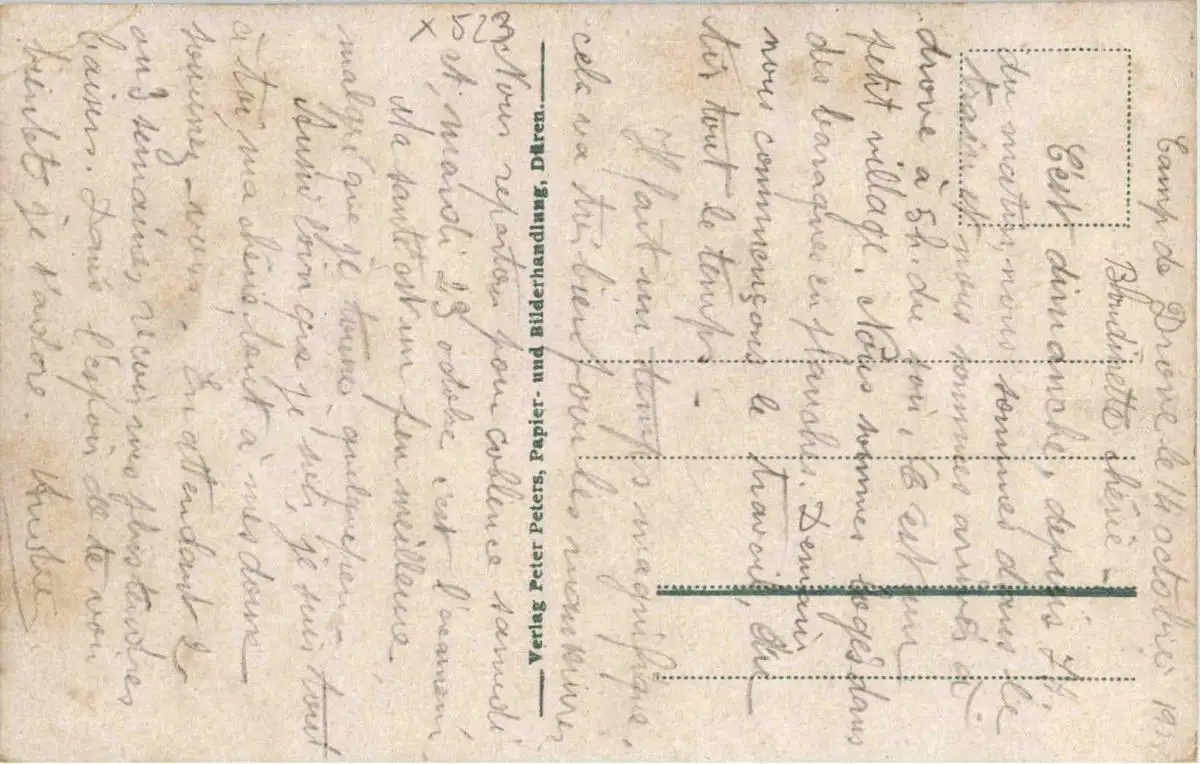 Camp de Drove le 14 octobre 19
Blondinette chérie -
C'est dimanche, depuis 7h.
du matin nous sommes dans le
train et nous sommes arrivés à
drove à 5h. du soir, c'est un
petit village. Nous sommes logés dans
des baraques en planches. Demain
nous commençons le travail, du
tir tout le temps -
Il fait un temps magnifique,
cela va très bien pour les manœuvres
Verlag Peter Peters, Papier- und Bilderhandlung, Düren.
Nous repartons pour coblence samedi
et, mardi 23 octobre c'est l'examen,
Ma santé est un peu meilleure,
malgré que je tousse quelque peu
Aussi loin que je sois, je suis tout
à toi, ma chérie, tout à nos doux
souvenirs. En attendant 2
ou 3 semaines, reçois mes plus tendres
baisers. Dans l'espoir de te voir
bientôt je t'adore. André
x 52